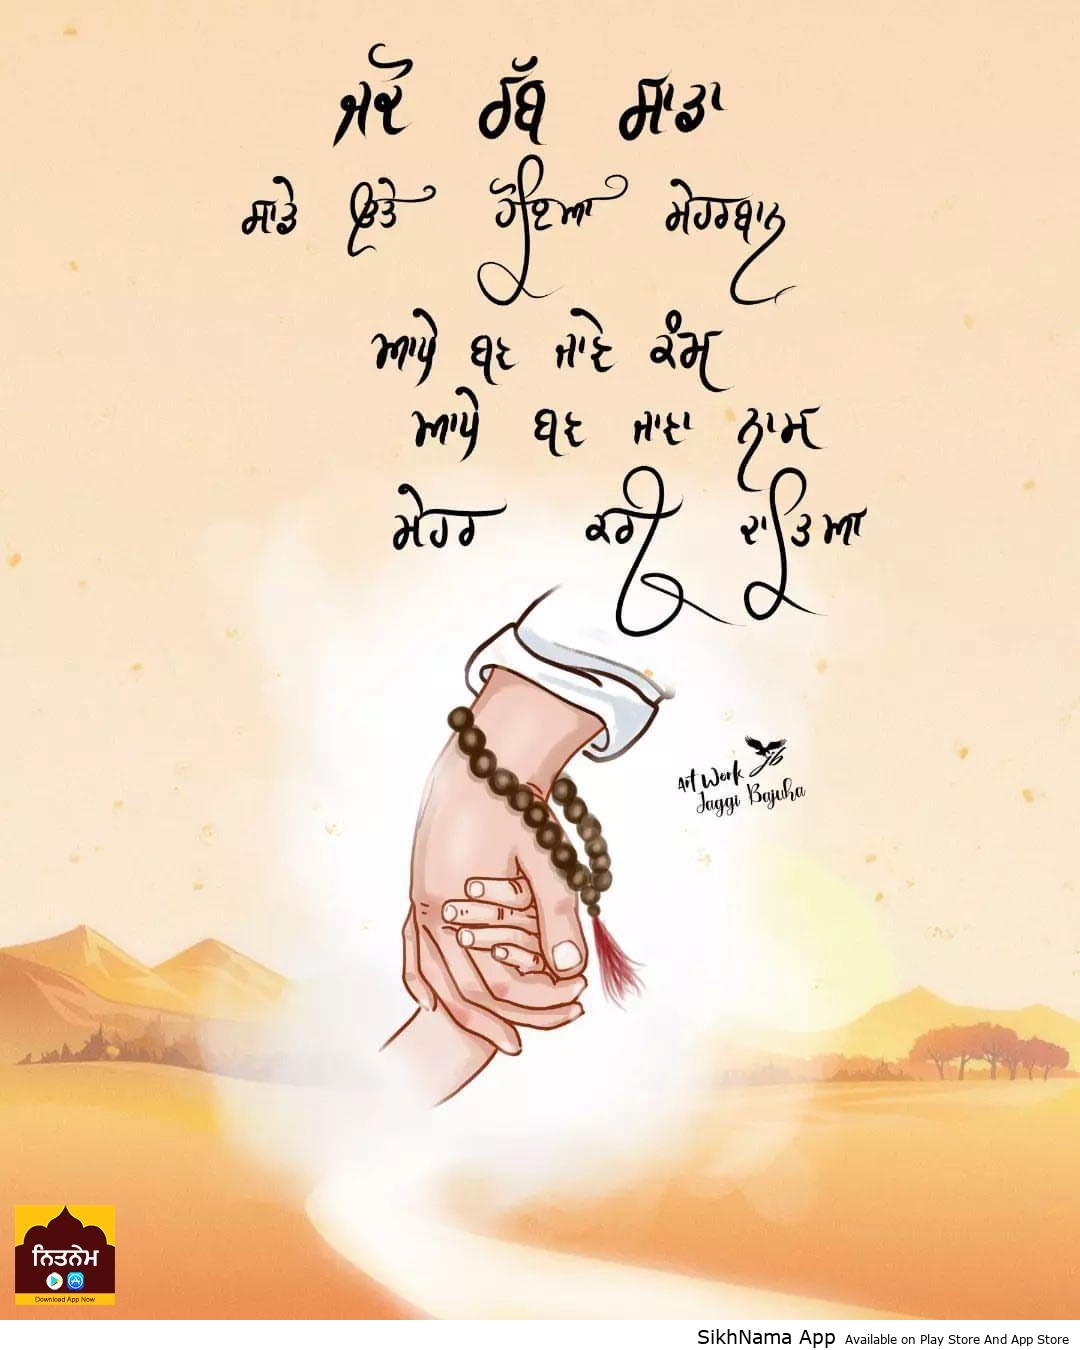 ਜਦੋ ਰੱਬ ਸਾਡਾ
ਸਾਡੇ ਉਤੇ ਹੋਇਆ ਮੇਹਰਬਾਨ
ਆਪੇ ਬਣ ਜਾਣੇ ਕੰਮ
ਆਪੇ ਬਣ ਜਾਣਾ ਨਾਮ
ਮੇਹਰ ਕਰੀ ਦਾਤਿਆ
Art Work jb
Jaggi Bajuha
ਨਿਤਨੇਮ
Download App Now
SikhNama App Available on Play Store And App Store